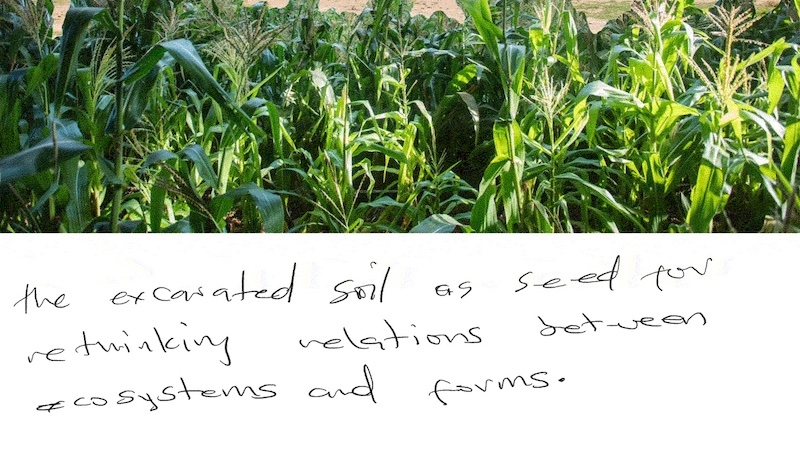 the excavated soil as seed for
rethinking relations between
ecosystems and forms.